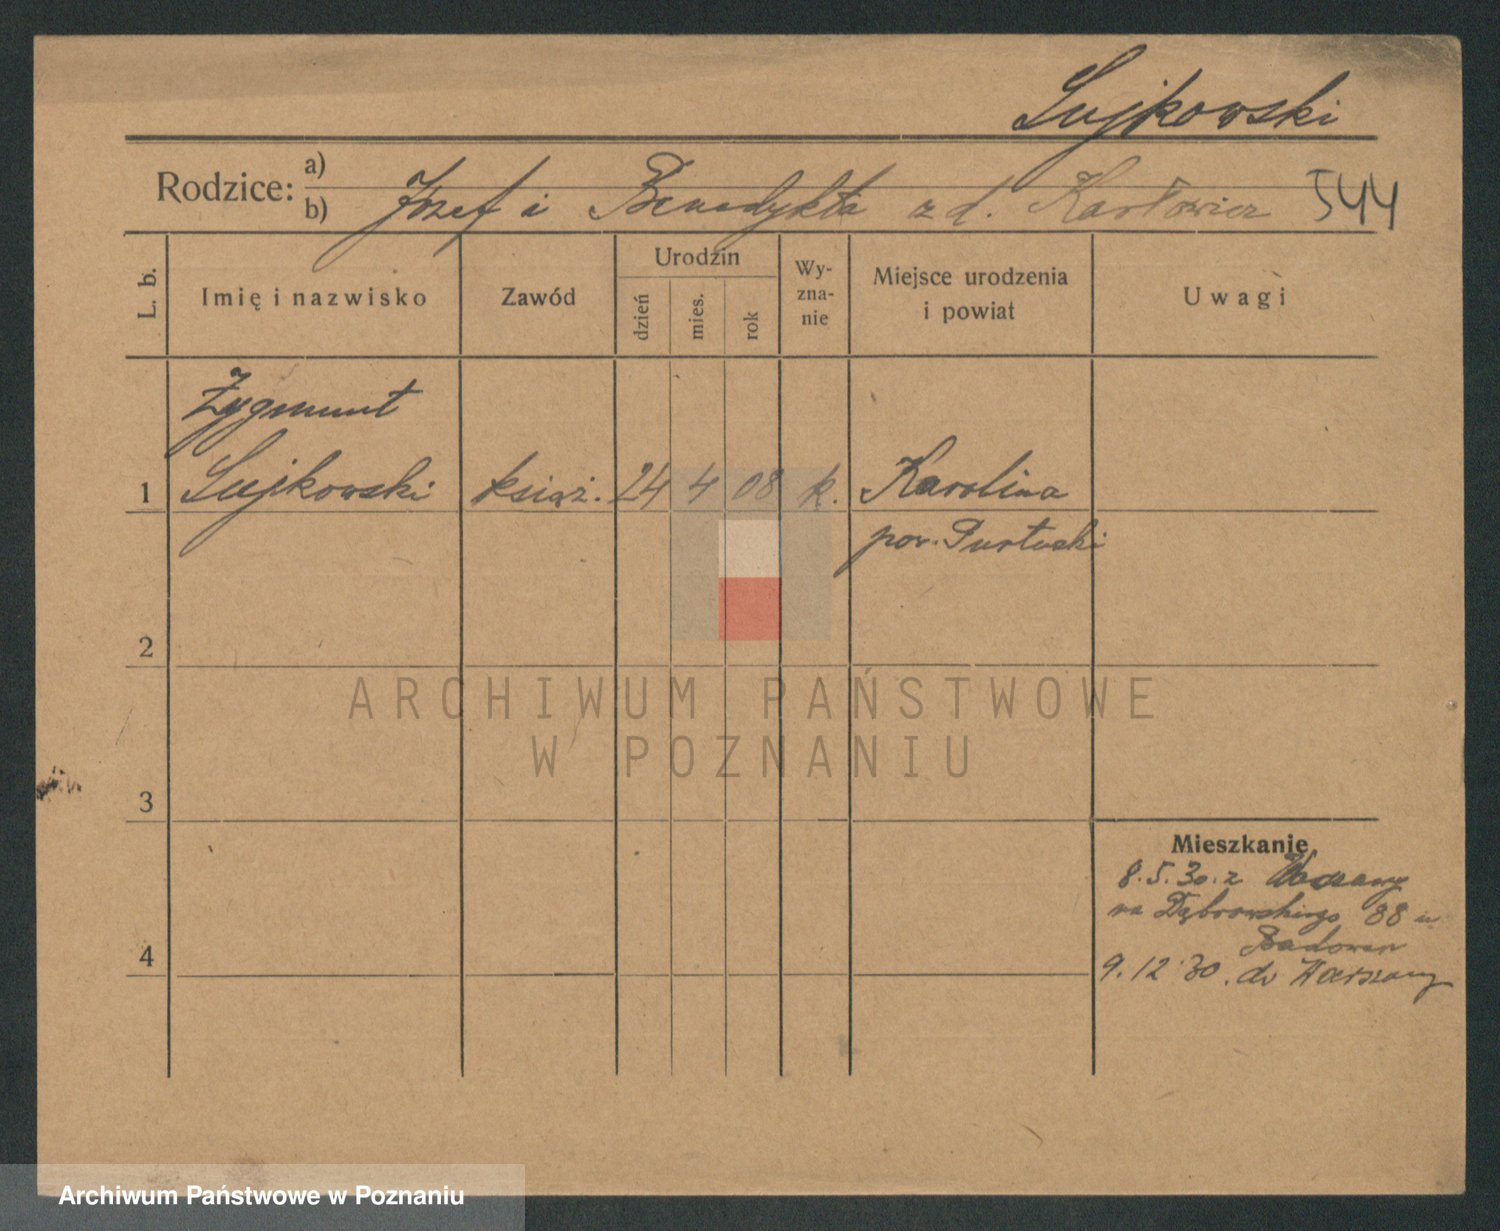 Sujkowski
Rodzice: a)
b) Józef i Benedykta z d. Karłowicz 544
L. b.
Imię i nazwisko
Zawód
Urodzin
dzień
mies.
rok
Wy-
zna-
nie
Miejsce urodzenia
i powiat
Uwagi
Zygmunt
1 Sujkowski książ. 24 4 08 k. Karolina
pow. Pułtuski
2
ARCHIWUM PAŃSTWOWE
W POZNANIU
3
Mieszkanie
8.5.30. z Warszawy
na Dąbrowskiego 88 u
4
9.12.30. do Warszawy
Archiwum Państwowe w Poznaniu